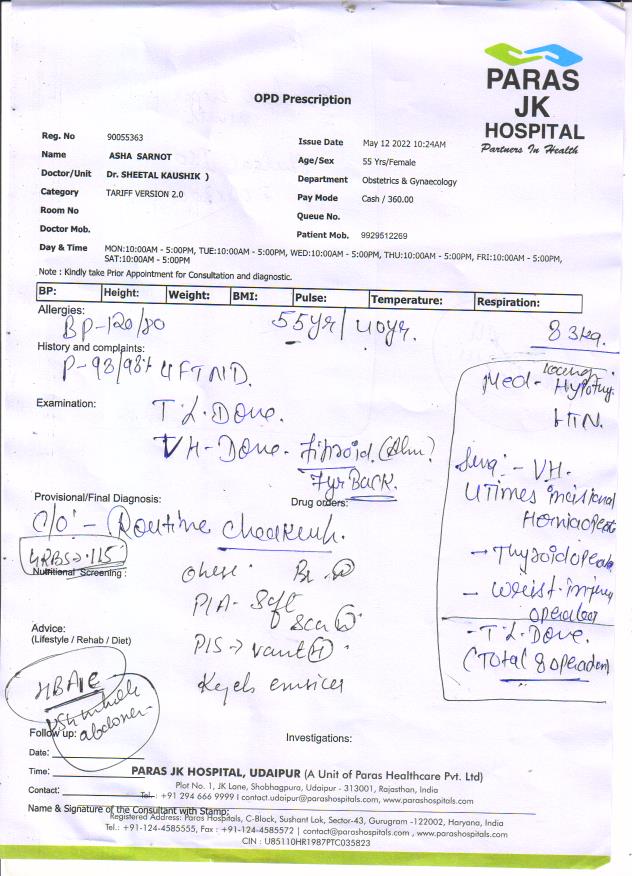 PARAS
JK
HOSPITAL
Partners In Health
OPD Prescription
Reg. No 90055363
Issue Date May 12 2022 10:24AM
Name ASHA SARNOT
Age/Sex 55 Yrs/Female
Doctor/Unit Dr. SHEETAL KAUSHIK )
Department Obstetrics & Gynaecology
Category TARIFF VERSION 2.0
Pay Mode Cash / 360.00
Room No
Queue No.
Doctor Mob.
Patient Mob. 9929512269
Day & Time MON:10:00AM - 5:00PM, TUE:10:00AM - 5:00PM, WED:10:00AM - 5:00PM, THU:10:00AM - 5:00PM, FRI:10:00AM - 5:00PM,
SAT:10:00AM - 5:00PM
Note : Kindly take Prior Appointment for Consultation and diagnostic.
BP: Height: Weight: BMI: Pulse: Temperature: Respiration:
Allergies:
BP-120/80 55yr/40yr. 83kg.
History and complaints:
P-93/98% 4FTND.
Med- Hypothy.
HTN.
Examination:
T.L. Done.
VH-Done. fibroid
7yr Back.
Surg:- VH.
4Times incisional
- Thyroidopeat
- wrist injury
- T.L. Done.
(Total 8 operation)
Provisional/Final Diagnosis:
Drug orders:
C/o - Routine checkeuh.
GRBS→115
Nutritional Screening :
obese. Br.
P/A- Soft
Scar
P/S→ vault H
Advice:
(Lifestyle / Rehab / Diet)
HBA1c
USG whole
abdomen
Follow up:
Investigations:
Date:
Time:
PARAS JK HOSPITAL, UDAIPUR (A Unit of Paras Healthcare Pvt. Ltd)
Plot No. 1, JK Lane, Shobhagpura, Udaipur - 313001, Rajasthan, India
Contact:
Tel.: +91 294 666 9999 I contact.udaipur@parashospitals.com, www.parashospitals.com
Name & Signature of the Consultant with Stamp:
Registered Address: Paras Hospitals, C-Block, Sushant Lok, Sector-43, Gurugram -122002, Haryana, India
Tel.: +91-124-4585555, Fax : +91-124-4585572 | contact@parashospitals.com , www.parashospitals.com
CIN : U85110HR1987PTC035823